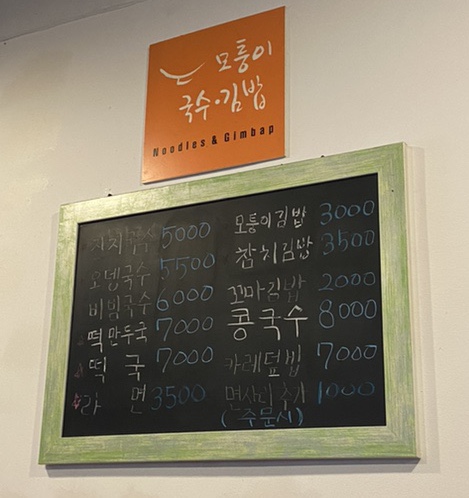 모퉁이
국수·김밥
Noodles & Gimbap
잔치국수 5000
오뎅국수 5500
비빔국수 6000
떡만두국 7000
떡국 7000
라면 3500
모퉁이김밥 3000
참치김밥 3500
꼬마김밥 2000
콩국수 8000
카레덮밥 7000
면사리추가 1000
(주문시)